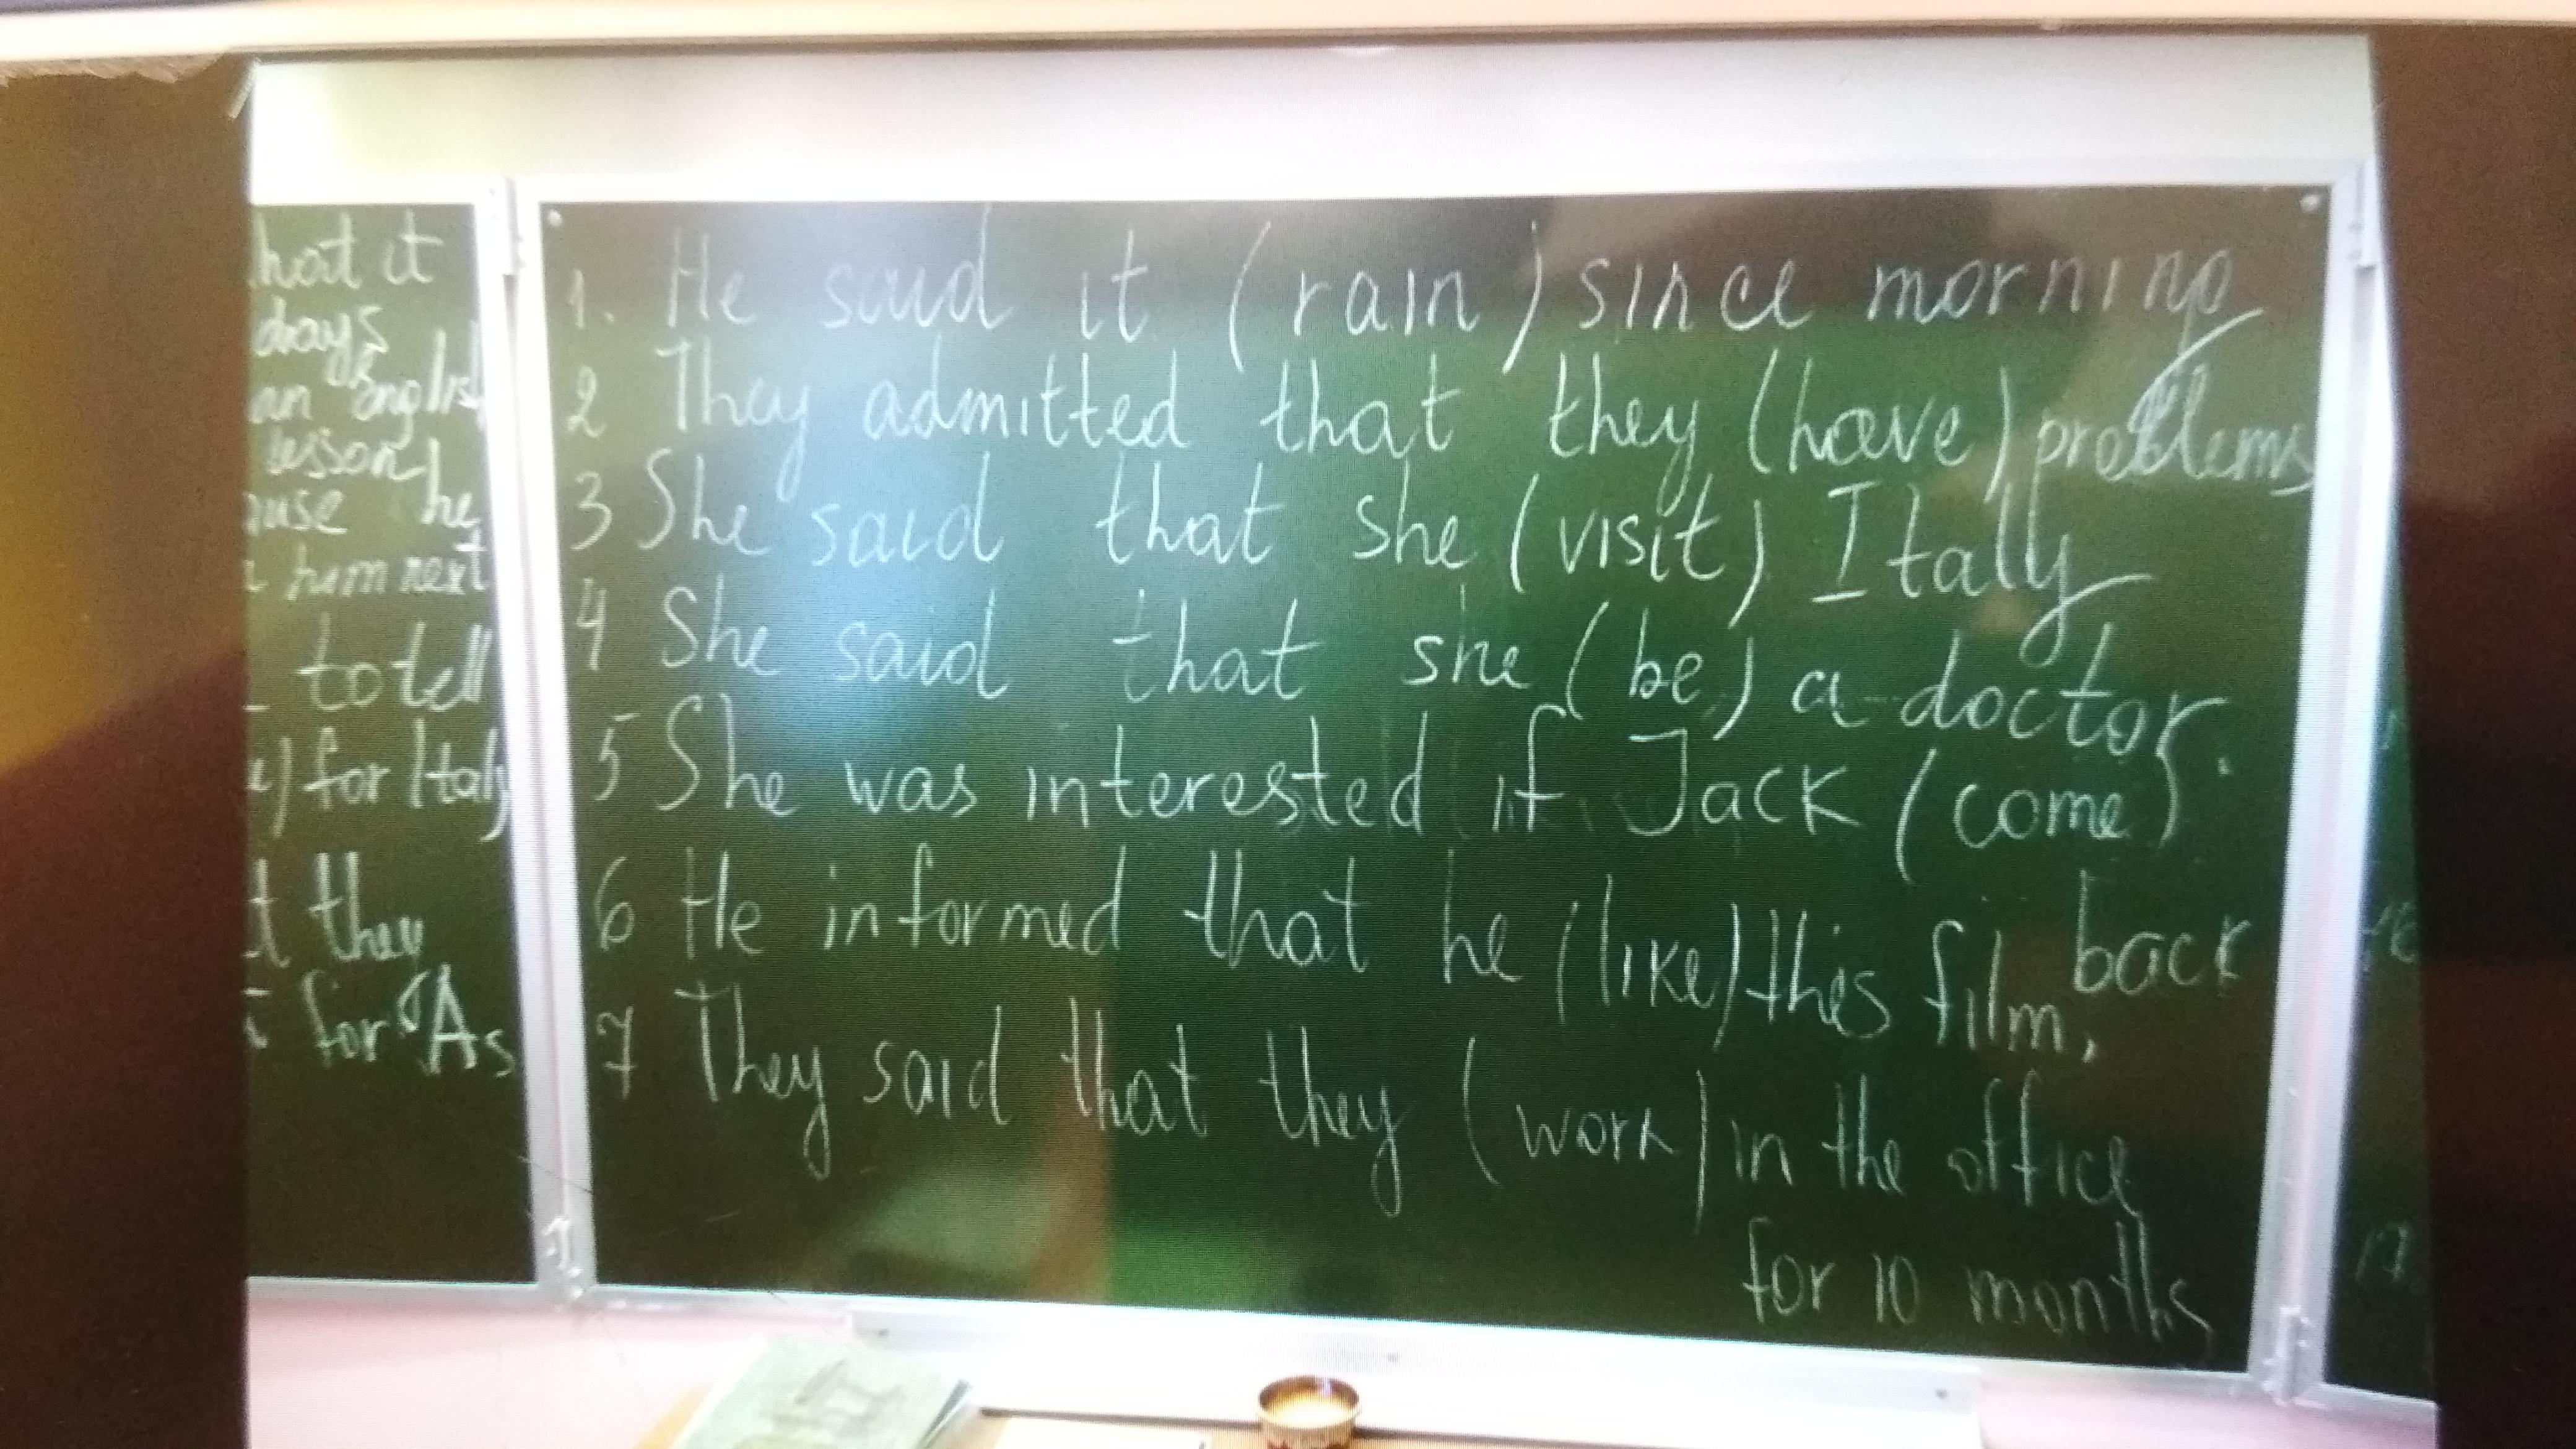 hat it
days
an english
lesson he
ause he
him next
to tell
for Italy
t they
for As
1. He said it (rain) since morning
2 They admitted that they (have) problems
3 She said that she (visit) Italy
4 She said that she (be) a doctor.
5 She was interested if Jack (come)
back
6 He informed that he (like) this film.
7 They said that they (work) in the office
for 10 months